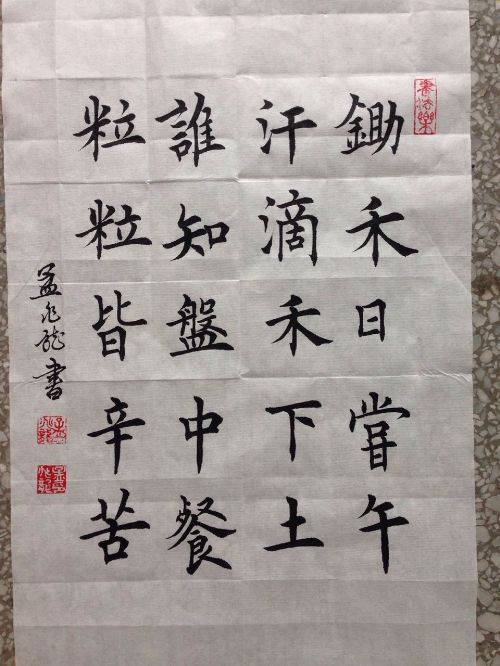 書法樂
鋤禾日嘗午
汗滴禾下土
誰知盤中餐
粒粒皆辛苦
孟兆龍書